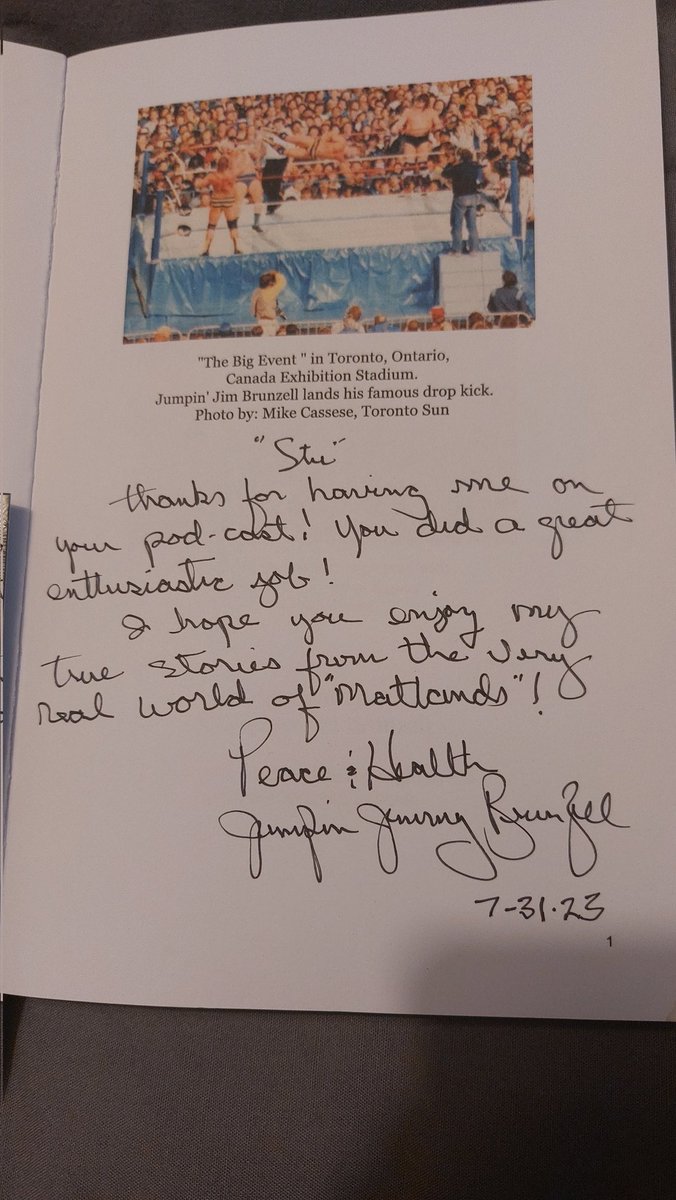 "The Big Event " in Toronto, Ontario,
Canada Exhibition Stadium.
Jumpin' Jim Brunzell lands his famous drop kick.
Photo by: Mike Cassese, Toronto Sun
"Stu"
thanks for having me on
your pod-cast! You did a great
enthusiastic job!
I hope you enjoy my
true stories from the very
real world of "Matlands"!
Peace & Health
Jumpin Jimmy Brunzell
7-31-23
1